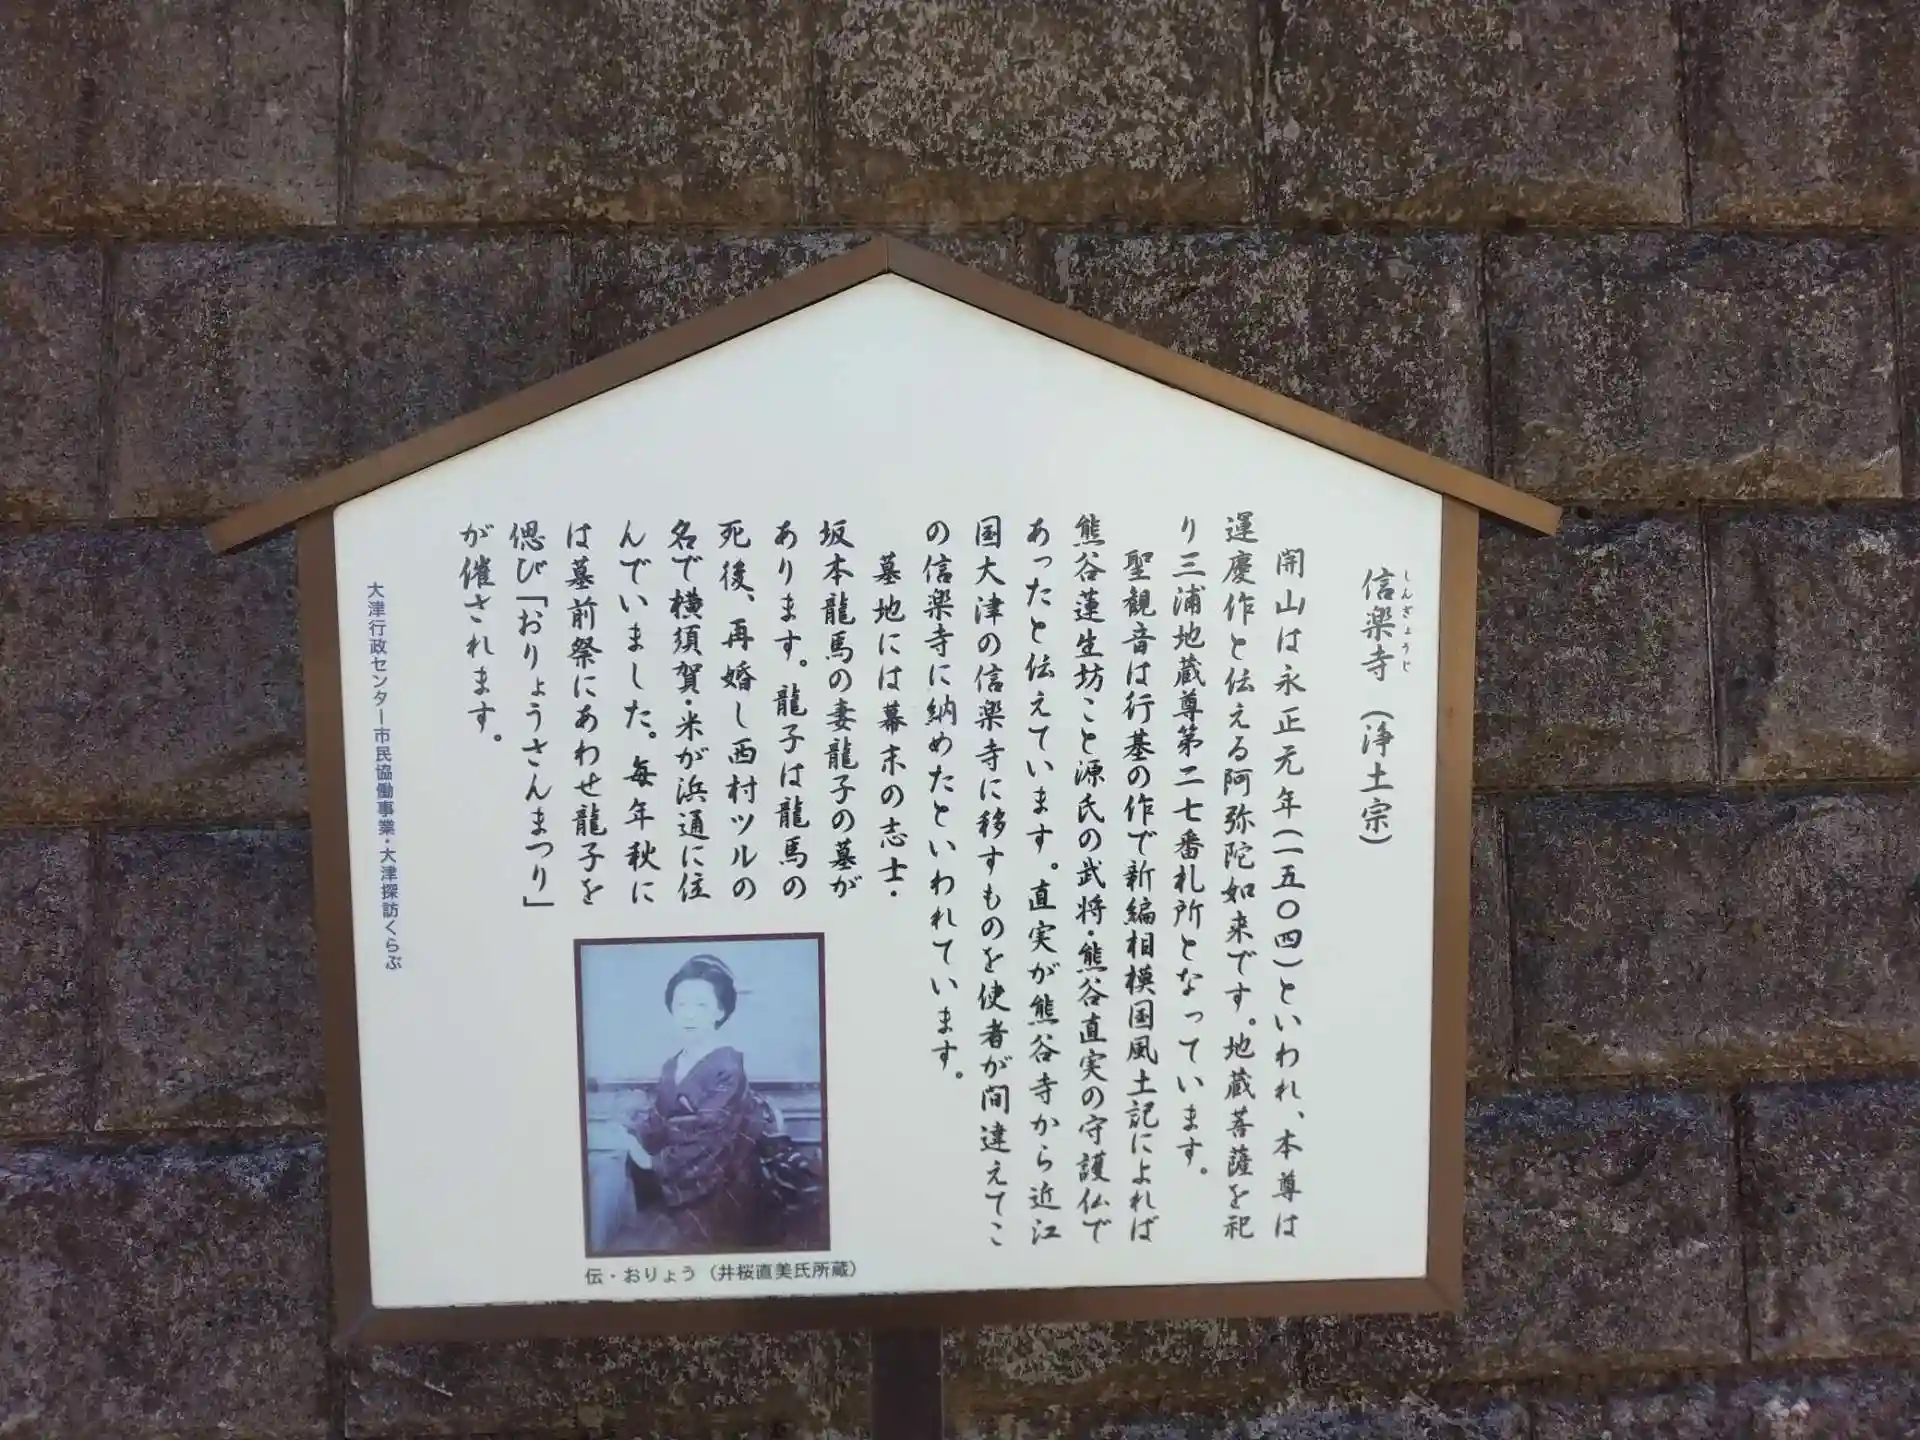 しんぎょうじ
信楽寺（浄土宗）
開山は永正元年（一五〇四）といわれ、本尊は
運慶作と伝える阿弥陀如来です。地蔵菩薩を祀
り三浦地蔵尊第二七番札所となっています。
聖観音は行基の作で新編相模国風土記によれば
熊谷蓮生坊こと源氏の武将・熊谷直実の守護仏で
あったと伝えています。直実が熊谷寺から近江
国大津の信楽寺に移すものを使者が間違えてこ
の信楽寺に納めたといわれています。
墓地には幕末の志士・
坂本龍馬の妻龍子の墓が
あります。龍子は龍馬の
死後、再婚し西村ツルの
名で横須賀・米が浜通に住
んでいました。毎年秋に
は墓前祭にあわせ龍子を
偲び「おりょうさんまつり」
が催されます。
伝・おりょう（井桜直美氏所蔵）
大津行政センター市民協働事業・大津探訪くらぶ